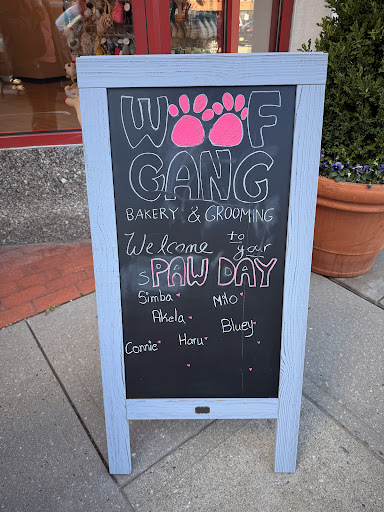 WOOF
GANG
BAKERY & GROOMING
Welcome to your
SPAW DAY
Simba Milo
Akela
Bluey
Connie Haru